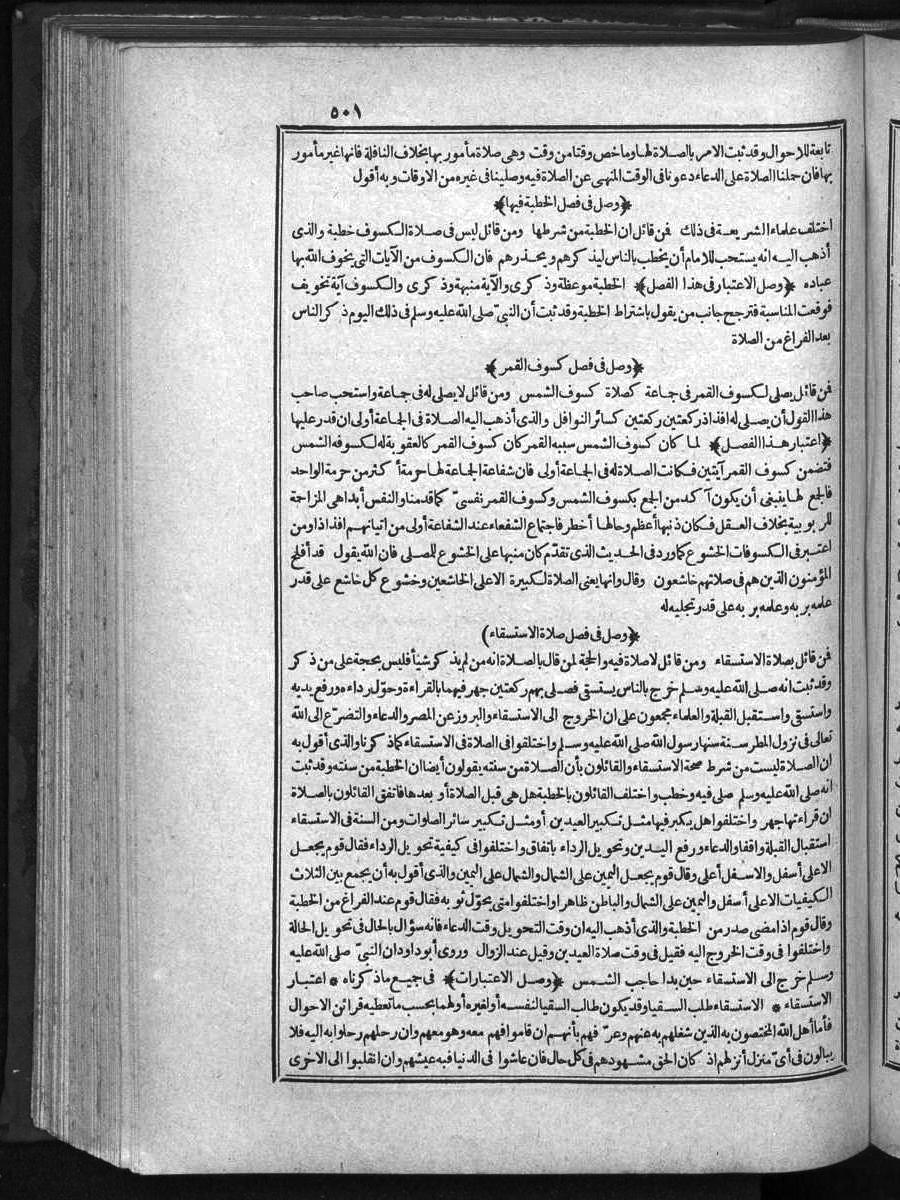 ٥٠١
تابعة للاحوال وقد ثبت الامر بالصلاة لها وما خص وقتا من وقت وهى صلاة مأمور بها بخلاف النافلة فانها غير مأمور
بها فان حملنا الصلاة على الدعاء دعونا فى الوقت المنهى عن الصلاة فيه وصلينا فى غيره من الاوقات وبه أقول
﴿وصل فى فصل الخطبة فيها﴾
اختلف علماء الشريعة فى ذلك فمن قائل ان الخطبة من شرطها ومن قائل ليس فى صلاة الكسوف خطبة والذى
أذهب اليه انه يستحب للامام أن يخطب بالناس ليذكرهم ويحذرهم فان الكسوف من الآيات التى يخوف الله بها
عباده ﴿وصل الاعتبار فى هذا الفصل﴾ الخطبة موعظة وذكرى والآية منبهة وذكرى والكسوف آية تخويف
فوقعت المناسبة فترجح جانب من يقول باشتراط الخطبة وقد ثبت أن النبىّ صلى الله عليه وسلم فى ذلك اليوم ذكر الناس
بعد الفراغ من الصلاة
﴿وصل فى فصل كسوف القمر﴾
فمن قائل يصلى لكسوف القمر فى جماعة كصلاة كسوف الشمس ومن قائل لا يصلى له فى جماعة واستحب صاحب
هذا القول أن يصلى له افذاذ ركعتين ركعتين كسائر النوافل والذى أذهب اليه الصلاة فى الجماعة أولى ان قدر عليها
﴿اعتبار هذا الفصل﴾ لما كان كسوف الشمس سببه القمر كان كسوف القمر كالعقوبة له لكسوفه الشمس
فتضمن كسوف القمر آيتين فكانت الصلاة له فى الجماعة أولى فان شفاعة الجماعة لها حرمة أكثر من حرمة الواحد
فالجمع لها ينبغى أن يكون آكد من الجمع بكسوف الشمس وكسوف القمر نفسىّ كما قدمنا والنفس أبدا هى المزاحمة
للربوبية بخلاف العقل فكان ذنبها أعظم وحالها أخطر فاجتماع الشفعاء عند الشفاعة أولى من اتيانهم افذاذا ومن
اعتبر فى الكسوفات الخشوع كما ورد فى الحديث الذى تقدّم كان منبها على الخشوع للمصلى فان الله يقول قد أفلح
المؤمنون الذين هم فى صلاتهم خاشعون وقال وانها يعنى الصلاة لكبيرة الاعلى الخاشعين وخشوع كل خاشع على قدر
علمه بربه وعلمه بربه على قدر تجليه له
﴿وصل فى فصل صلاة الاستسقاء)
فمن قائل بصلاة الاستسقاء ومن قائل لا صلاة فيه والحجة لمن قال بالصلاة انه من لم يذكر شيأ فليس بحجة على من ذكر
وقد ثبت انه صلى الله عليه وسلم خرج بالناس يستسقى فصلى بهم ركعتين جهر فيهما بالقراءة وحوّل رداءه ورفع يديه
واستسقى واستقبل القبلة والعلماء مجمعون على ان الخروج الى الاستسقاء والبروز عن المصر والدعاء والتضرّع الى الله
تعالى فى نزول المطر سنة سنها رسول الله صلى الله عليه وسلم واختلفوا فى الصلاة فى الاستسقاء كما ذكرنا والذى أقول به
ان الصلاة ليست من شرط صحة الاستسقاء والقائلون بأن الصلاة من سنته يقولون أيضا ان الخطبة من سنته وقد ثبت
انه صلى الله عليه وسلم صلى فيه وخطب واختلف القائلون بالخطبة هل هى قبل الصلاة أو بعدها فاتفق القائلون بالصلاة
ان قراءتها جهر واختلفوا هل يكبر فيها مثل تكبير العيدين أو مثل تكبير سائر الصلوات ومن السنة فى الاستسقاء
استقبال القبلة واقفا والدعاء ورفع اليدين وتحويل الرداء باتفاق واختلفوا فى كيفية تحويل الرداء فقال قوم يجعل
الاعلى أسفل والاسفل أعلى وقال قوم يجعل اليمين على الشمال والشمال على اليمين والذى أقول به أن يجمع بين الثلاث
الكيفيات الاعلى أسفل واليمين على الشمال والباطن ظاهرا واختلفوا متى يحوّل ثوبه فقال قوم عند الفراغ من الخطبة
وقال قوم اذا مضى صدر من الخطبة والذى أذهب اليه ان وقت التحويل وقت الدعاء فانه سؤال بالحال فى تحويل الحالة
واختلفوا فى وقت الخروج اليه فقيل فى وقت صلاة العيدين وقيل عند الزوال وروى أبو داود ان النبىّ صلى الله عليه
وسلم خرج الى الاستسقاء حين بدا حاجب الشمس ﴿وصل الاعتبارات﴾ فى جميع ما ذكرناه * اعتبار
الاستسقاء * الاستسقاء طلب السقيا وقد يكون طالب السقيا لنفسه أو لغيره أو لهما بحسب ما تعطيه قرائن الاحوال
فأما أهل الله المختصون به الذين شغلهم به عنهم وعرّفهم بأنهم ان قاموا فهم معه وهو معهم وان رحلهم رحلوا به اليه فلا
يبالون فى أىّ منزل أنزلهم اذ كان الحق مشهودهم فى كل حال فان عاشوا فى الدنيا فبه عيشهم وان انقلبوا الى الاخرى